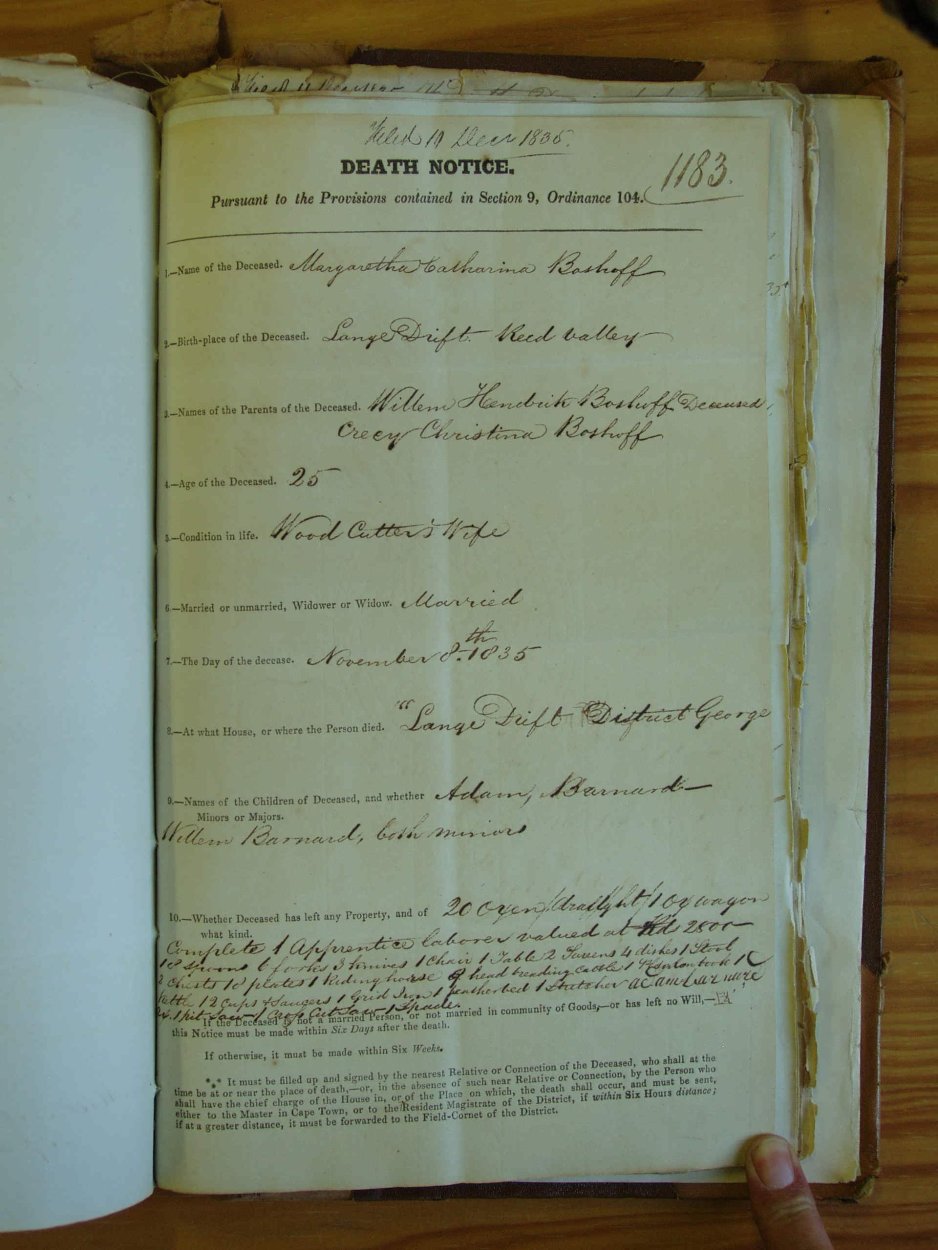 Filed 10 Decr 1835.
DEATH NOTICE.
1183.
Pursuant to the Provisions contained in Section 9, Ordinance 104.
1.—Name of the Deceased. Margaretha Catharina Boshoff
2.—Birth-place of the Deceased. Lange Drift. Reed Valley
3.—Names of the Parents of the Deceased. Willem Hendrik Boshoff Deceased
Crecy Christina Boshoff
4.—Age of the Deceased. 25
5.—Condition in life. Wood Cutter's Wife
6.—Married or unmarried, Widower or Widow. Married
7.—The Day of the decease. November 8th. 1835
8.—At what House, or where the Person died. "Lange Drift District George
9.—Names of the Children of Deceased, and whether Adam, Barnard
Minors or Majors.
Willem Barnard, both minors
10.—Whether Deceased has left any Property, and of 20 Oxen (draught) 1 Ox wagon
what kind.
Complete 1 Apprentice laborer valued at Rds 2800
18 spoons 6 forks 3 knives 1 Chair 1 Table 2 4 dishes 1 Stool
2 Chests 18 plates 1 Riding horse 9 head breeding Cattle 1
kettle 12 Cups & Saucers 1 Grid Iron 1 featherbed 1 Stretcher
1 pit Saw 1 Cross Cut Saw 1 Spade.
If the Deceased is not a married Person, or not married in community of Goods,—or has left no Will,—
this Notice must be made within Six Days after the death.
If otherwise, it must be made within Six Weeks.
*** It must be filled up and signed by the nearest Relative or Connection of the Deceased, who shall at the
time be at or near the place of death,—or, in the absence of such near Relative or Connection, by the Person who
shall have the chief charge of the House in, or of the Place on which, the death shall occur, and must be sent,
either to the Master in Cape Town, or to the Resident Magistrate of the District, if within Six Hours distance;
if at a greater distance, it must be forwarded to the Field-Cornet of the District.